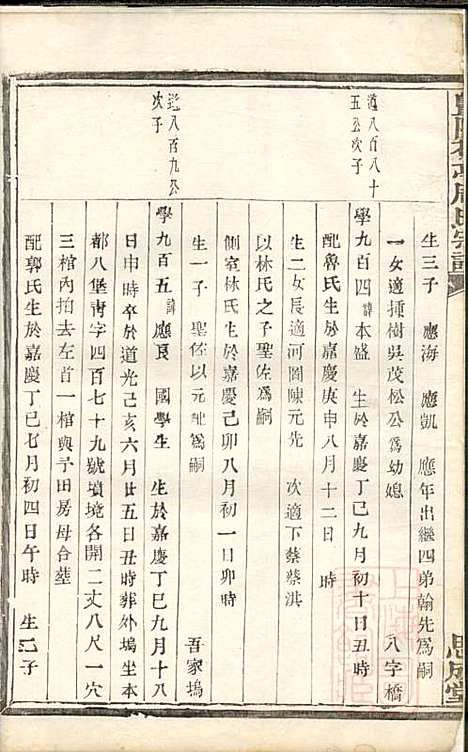 生三子 應海 應凱 應年出繼四弟翰先爲嗣
一女適捶樹吳茂松公爲幼媳 八字橋
道八百八十五公次子
學九百四 諱 本盛 生於嘉慶丁巳九月初十日丑時
配魯氏生於嘉慶庚申八月十二日 時
生二女長適河圖陳元先 次適下蔡蔡淇
以林氏之子聖佐爲嗣
側室林氏生於嘉慶己卯八月初一日卯時
生一子 聖佐以元配爲嗣 吾家塢
道八百九公次子
學九百五 諱 應良 國學生 生於嘉慶丁巳九月十八
日申時卒於道光己亥六月廿五日丑時葬外塢坐本
都八堡靑字四百七十九號墳境各開二丈八尺一穴
三棺內拍去左首一棺與予田房母合塟
配郭氏生於嘉慶丁巳七月初四日午時 生二子
周氏宗譜
思成堂